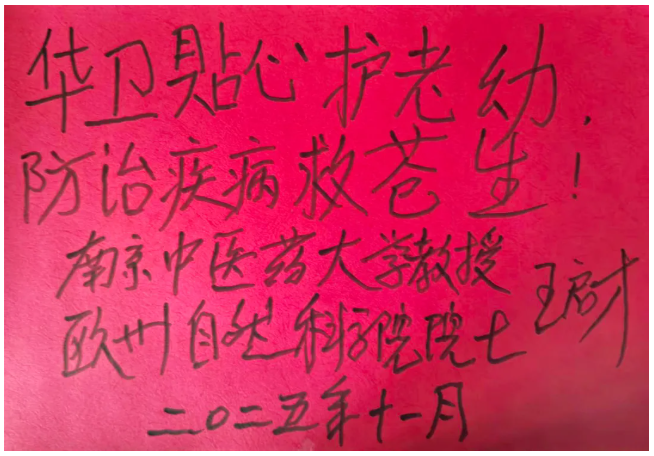 华卫貼心护老幼，
防治疾病救苍生！
南京中医药大学教授
欧州自然科学院院士 王启才
二〇二五年十一月